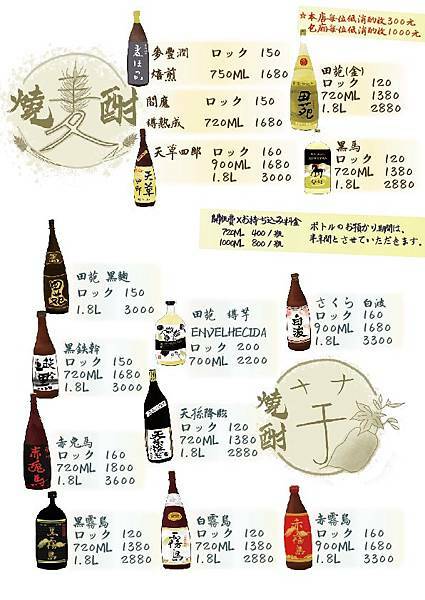 ☆本店每位低消酌收300元
包廂每位低消酌收1000元
燒酎
麥
麥豐潤 ロック 150
焙煎 750ML 1680
閻魔 ロック 150
樽熟成 720ML 1680
天草四郎 ロック 160
900ML 1680
1.8L 3000
田苑(金)
ロック 120
720ML 1380
1.8L 2880
黒馬
ロック 120
720ML 1380
1.8L 2880
開瓶費Xお持ち込み料金
720ML 400/瓶
1000ML 800/瓶
ボトルのお預かり期間は、
半年間とさせていただきます。
田苑 黒麹
ロック 150
1.8L 3000
田苑 樽芋
ENVELHECIDA
ロック 200
700ML 2200
さくら 白波
ロック 160
900ML 1680
1.8L 3300
黒鉄幹
ロック 150
720ML 1680
1.8L 3000
天孫降臨
ロック 120
720ML 1380
1.8L 2880
燒酎
芋
赤兎馬
ロック 160
720ML 1800
1.8L 3600
黒霧島
ロック 120
720ML 1380
1.8L 2880
白霧島
ロック 120
720ML 1380
1.8L 2880
赤霧島
ロック 160
900ML 1680
1.8L 3300